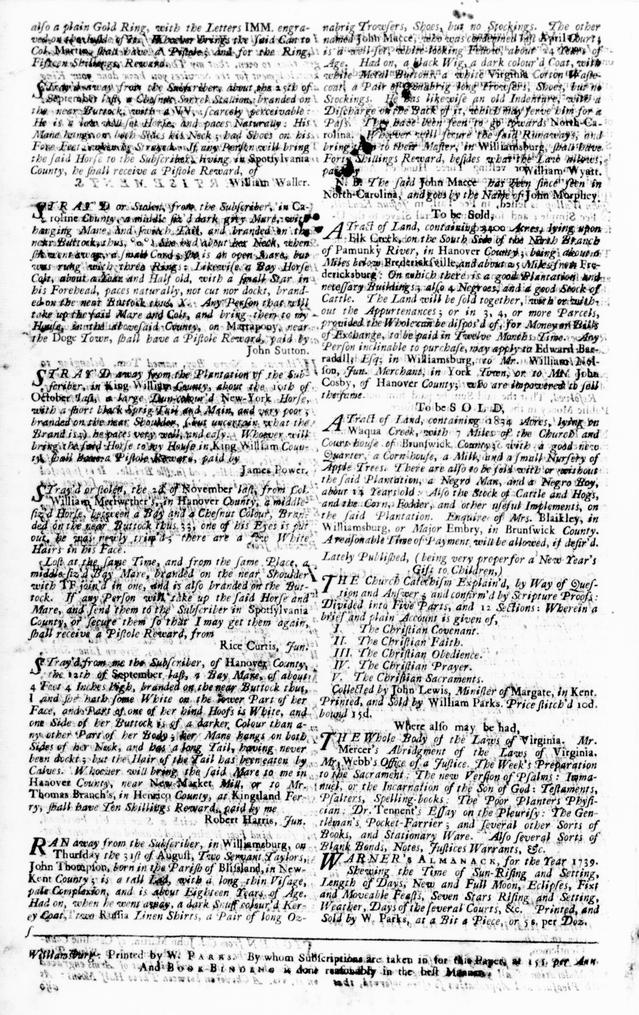 also a plain Gold Ring, with the Letters IMM. engra-
ved on the inside of it. Whoever brings the said Car to
Col. Martin, shall have a Pistole; and for the Ring,
Fifteen Shillings Reward.
STray'd away from the Subscriber, about the 25th of
September last, a Chesnut Sorrel Stallion, branded on
the near Buttock, with a W, scarcely perceivable:
He is a low well-set Horse, and paces Naturally: His
Mane hangs on both Sides his Neck; had Shoes on his
Fore Feet when he Strayed. If any Person will bring
the said Horse to the Subscriber, living in Spotsylvania
County, he shall receive a Pistole Reward, of
William Waller.
STRAY'D or Stolen, from the Subscriber, in Ca-
roline County, a middle siz'd dark grey Mare, with
hanging Mane, and switch Tail, and branded on the
near Buttock, thus, She had about her Neck, when
she went away, a small Cord; she is an open Mare, but
was rung with three Rings: Likewise a Bay Horse
Colt, about a Year and Half old, with a small Star in
his Forehead, paces naturally, not cut nor dockt, brand-
ed on the near Buttock thus, X. Any Person that will
take up the said Mare and Colt, and bring them to my
House, in the abovesaid County, on Mattapony, near
the Dogg Town, shall have a Pistole Reward, paid by
John Sutton.
STRAY'D away from the Plantation of the Sub-
scriber, in King William County, about the 10th of
October last, a large Dun-colour'd New-York Horse,
with a short black Sprig Tail and Main, and very poor;
branded on the near Shoulder, (but uncertain what the
Brand is;) he paces very well, and easy. Whoever will
bring the said Horse to my House in King William Coun-
ty, shall have a Pistole Reward, paid by
James Power.
STray'd or stolen, the 2d of November last, from Col.
William Meriwether's, in Hanover County, a middle-
siz'd Horse, between a Bay and a Chesnut Colour, Bran-
ded on the near Buttock thus 33, one of his Eyes is put
out, he was newly trim'd; there are a few White
Hairs in his Face.
Lost at the same Time, and from the same Place, a
middle-siz'd Bay Mare, branded on the near Shoulder
with TF join'd in one, and is also branded on the But-
tock. If any Person will take up the said Horse and
Mare, and send them to the Subscriber in Spotsylvania
County, or secure them so that I may get them again,
shall receive a Pistole Reward, from
Rice Curtis, Jun.
STray'd from me the Subscriber, of Hanover County,
the 12th of September last, a Bay Mare, of about
4 Feet 4 Inches high, branded on the near Buttock thus,
I and she hath some White on the lower Part of her
Face, and Part of one of her hind Hoofs is White, and
one Side of her Buttock is of a darker Colour than a-
ny other Part of her Body; her Mane hangs on both
Sides of her Neck, and has a long Tail, having never
been dockt; but the Hair of the Tail has been eaten by
Calves. Whoever will bring the said Mare to me in
Hanover County, near New Market Mill, or to Mr.
Thomas Branch's, in Henrico County, at Kingsland Fer-
ry, shall have Ten Shillings Reward, paid by me
Robert Harris, Jun.
RAN away from the Subscriber, in Williamsburg, on
Thursday the 31st of August, Two Servant Taylors,
John Thompson, born in the Parish of Blisland, in New-
Kent County; is a tall Lad, with a long thin Visage,
pale Complexion, and is about Eighteen Years of Age.
Had on, when he went away, a dark Snuff colour'd Ker-
sey Coat, two Russia Linen Shirts, a Pair of long Oz-
nabrig Trowsers, Shoes, but no Stockings. The other
named John Macce, who was condemned last April Court;
is a well-set, white looking Fellow, about 24 Years of
Age. Had on, a black Wig, a dark colour'd Coat, with
white Metal Buttons, a white Virginia Cotton Waste-
coat, a Pair of Oznabrig long Trowsers, Shoes, but no
Stockings. He has likewise an old Indenture, with a
Discharge on the Back of it, which may serve him for a
Pass. They have been seen to go towards North-Ca-
rolina. Whoever will secure the said Runaways, and
bring them to their Master, in Williamsburg, shall have
Forty Shillings Reward, besides what the Law allows,
paid William Wyatt.
N. B. The said John Macce has been since seen in
North-Carolina, and goes by the Name of John Morphey.
To be Sold,
A Tract of Land, containing 2400 Acres, lying upon
Elk Creek, on the South Side of the North Branch
of Pamunky River, in Hanover County; being about 2
Miles below Brederickfville, and about 25 Miles from Fre-
dericksburg: On which there is a good Plantation and
necessary Buildings; also 4 Negroes, and a good Stock of
Cattle. The Land will be sold together, with or with-
out the Appurtenances; or in 3, 4, or more Parcels,
provided the Whole can be dispos'd of, for Money or Bills
of Exchange, to be paid in Twelve Months Time. Any
Person inclinable to purchase, may apply to Edward Bar-
radall, Esq; in Williamsburg, to Mr. William Nel-
son, Jun. Merchant, in York Town, or to Mr. John
Cosby, of Hanover County; who are impowered to sell
the same.
To be SOLD,
A Tract of Land, containing 1834 Acres, lying on
Waqua Creek, with 7 Miles of the Church and
Court-house of Brunswick County; with a good new
Quarter, a Corn-house, a Mill, and a small Nursery of
Apple Trees. There are also to be sold with or without
the said Plantation, a Negro Man, and a Negro Boy,
about 12 Years old: Also the Stock of Cattle and Hogs,
and the Corn, Fodder, and other useful Implements, on
the said Plantation. Enquire of Mrs. Blaikley, in
Williamsburg, or Major Embry, in Brunswick County.
A reasonable Time of Payment will be allowed, if desir'd.
Lately Published, (being very proper for a New Year's
Gift to Children,)
THE Church Catechism Explain'd, by Way of Ques-
tion and Answer; and confirm'd by Scripture Proofs:
Divided into Five Parts, and 12 Sections: Wherein a
brief and plain Account is given of,
I. The Christian Covenant.
II. The Christian Faith.
III. The Christian Obedience.
IV. The Christian Prayer.
V. The Christian Sacraments.
Collected by John Lewis, Minister of Margate, in Kent.
Printed, and Sold by William Parks. Price stitch'd 10d.
bound 15d.
Where also may be had,
THE Whole Body of the Laws of Virginia. Mr.
Mercer's Abridgment of the Laws of Virginia.
Mr. Webb's Office of a Justice. The Week's Preparation
to the Sacrament: The new Version of Psalms: Imma-
nuel, or the Incarnation of the Son of God: Testaments,
Psalters, Spelling-books: The Poor Planters Physi-
cian: Dr. Tennent's Essay on the Pleurisy: The Gen-
tleman's Pocket-Farrier; and several other Sorts of
Books, and Stationary Ware. Also several Sorts of
Blank Bonds, Notes, Justices Warrants, &c.
WARNER'S ALMANACK, for the Year 1739.
Shewing the Time of Sun-Rising and Setting,
Length of Days, New and Full Moon, Eclipses, Fixt
and Moveable Feasts, Seven Stars Rising and Setting,
Weather, Days of the several Courts, &c. Printed, and
Sold by W. Parks, at a Bit a Piece, or 5s. per Doz.
Williamsburg: Printed by W. PARKS. By whom Subscriptions are taken in for this Paper, at 15s. per Ann.
And BOOK-BINDING is done reasonably in the best Manner.